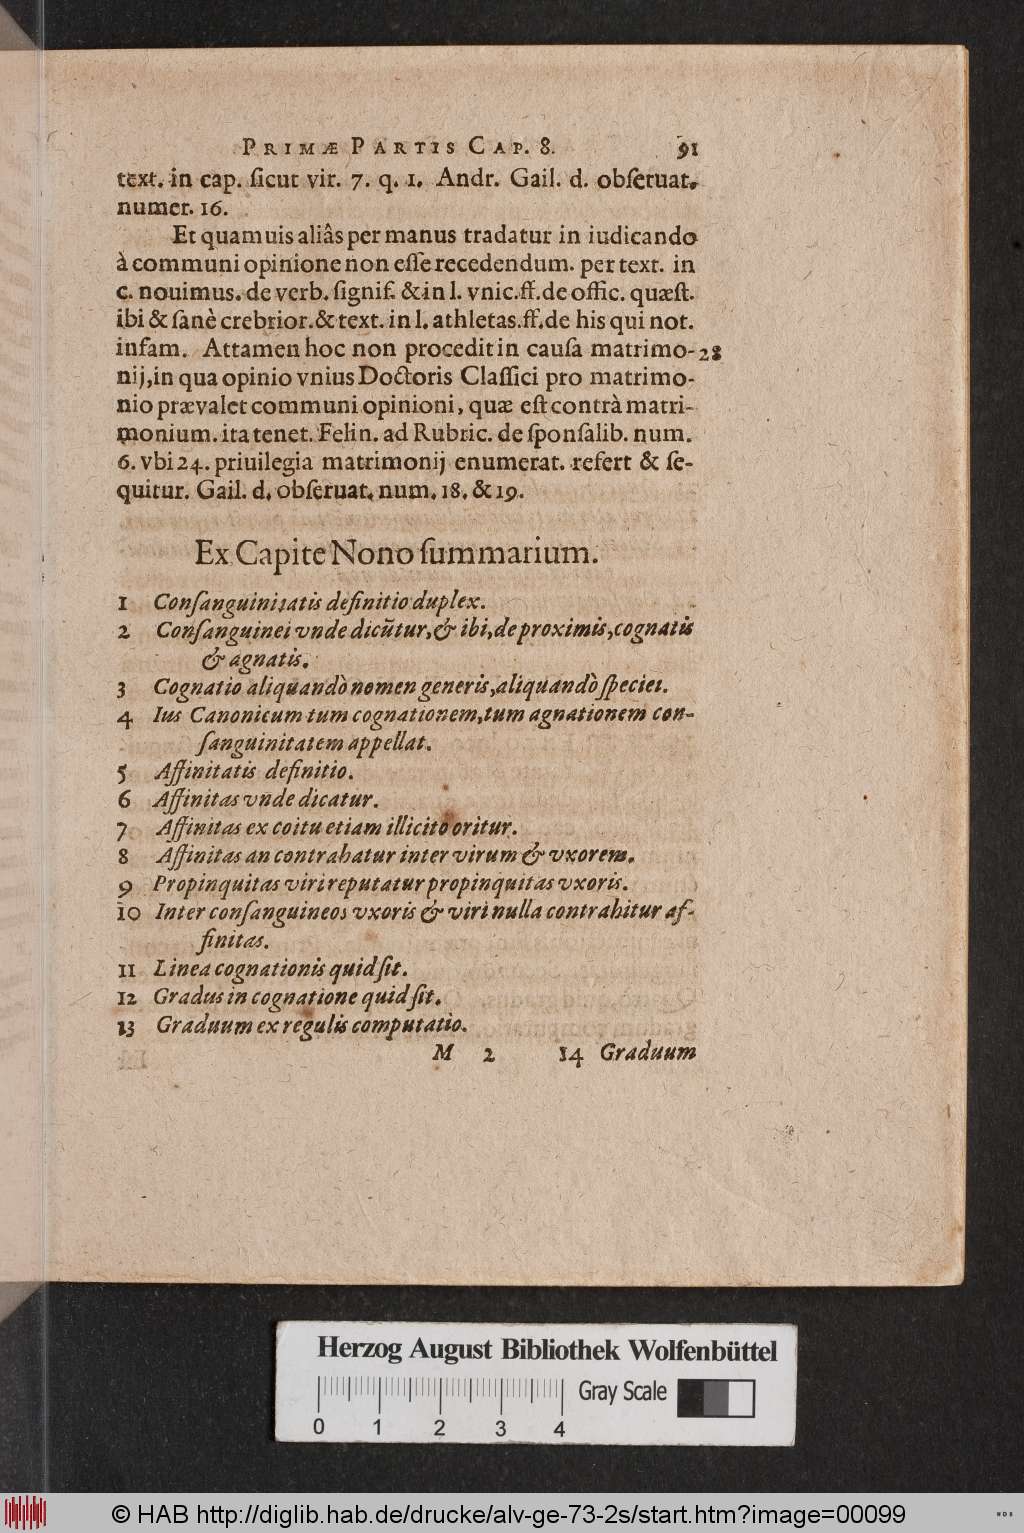 PRIMÆ PARTIS CAP. 8. 91
text. in cap. ſicut vir. 7. q. 1. Andr. Gail. d. obſeruat.
numer. 16.
Et quamuis aliâs per manus tradatur in iudicando
à communi opinione non eſſe recedendum. per text. in
c. nouimus. de verb. ſignif. & in l. vnic. ff. de offic. quæſt.
ibi & ſanè crebrior. & text. in l. athletas. ff. de his qui not.
infam. Attamen hoc non procedit in cauſa matrimo- 28
nij, in qua opinio vnius Doctoris Claſſici pro matrimo-
nio prævalet communi opinioni, quæ eſt contrà matri-
monium. ita tenet. Felin. ad Rubric. de ſponſalib. num.
6. vbi 24. priuilegia matrimonij enumerat. refert & ſe-
quitur. Gail. d. obſeruat. num. 18. & 19.
Ex Capite Nono ſummarium.
1 Conſanguinitatis definitio duplex.
2 Conſanguinei vnde dicũtur, & ibi, de proximis, cognatis
& agnatis.
3 Cognatio aliquandò nomen generis, aliquandò ſpeciei.
4 Ius Canonicum tum cognationem, tum agnationem con-
ſanguinitatem appellat.
5 Affinitatis definitio.
6 Affinitas vnde dicatur.
7 Affinitas ex coitu etiam illicito oritur.
8 Affinitas an contrahatur inter virum & vxorem.
9 Propinquitas viri reputatur propinquitas vxoris.
10 Inter conſanguineos vxoris & viri nulla contrahitur af-
finitas.
11 Linea cognationis quid ſit.
12 Gradus in cognatione quid ſit.
13 Graduum ex regulis computatio.
M 2 14 Graduum
Herzog August Bibliothek Wolfenbüttel
Gray Scale
0 1 2 3 4
© HAB http://diglib.hab.de/drucke/alv-ge-73-2s/start.htm?image=00099